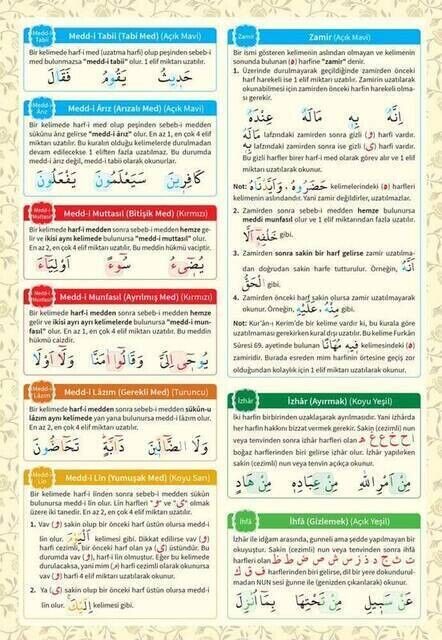 Medd-i Tabii
Medd-i Tabii (Tabi Med) (Açık Mavi)
Bir kelimede harf-i med (uzatma harfi) olup peşinden sebeb-i
med bulunmazsa "medd-i tabii" olur. 1 elif miktarı uzatılır.
حَدِيثُ يَقُومُ فَقَالَ
Medd-i Ârız
Medd-i Ârız (Arızalı Med) (Açık Mavi)
Bir kelimede harf-i med olup peşinden sebeb-i medden
sükûnu ârız gelirse "medd-i ârız" olur. En az 1, en çok 4 elif
miktarı uzatılır. Bu kuralın olduğu kelimelerde durulmadan
devam edilecekse 1 eliften fazla uzatılmaz. Bu durumda
medd-i ârız değil, medd-i tabii olarak okunurlar.
كَافِرِينَ سَيَعْلَمُونَ يَفْعَلُونَ
Medd-i Muttasıl
Medd-i Muttasıl (Bitişik Med) (Kırmızı)
Bir kelimede harf-i medden sonra sebeb-i medden hemze ge-
lir ve ikisi aynı kelimede bulunursa "medd-i muttasıl" olur.
En az 2, en çok 4 elif miktarı uzatılır. Bu meddin hükmü vaciptir.
يُضِيءُ سُوءٌ اَوْلِيَاءَ
Medd-i Munfasıl
Medd-i Munfasıl (Ayrılmış Med) (Kırmızı)
Bir kelimede harf-i medden sonra sebeb-i medden hemze
gelir ve ikisi ayrı ayrı kelimelerde bulunursa "medd-i mun-
fasıl" olur. En az 1, en çok 4 elif miktarı uzatılır. Bu meddin
hükmü caizdir.
يُوحٰى اِلَىَّ وَقَالُوا اٰمَنَّا وَلَا اَوْلَادُ
Medd-i Lâzım
Medd-i Lâzım (Gerekli Med) (Turuncu)
Bir kelimede harf-i medden sonra sebeb-i medden sükûn-u
lâzım aynı kelimede yan yana bulunursa medd-i lâzım olur.
En az 2, en çok 4 elif miktarı uzatılır.
وَلَا الضَّالِّينَ دَابَّةٍ تَحَاضُّونَ
Medd-i Lin
Medd-i Lin (Yumuşak Med) (Koyu Sarı)
Bir kelimede harf-i linden sonra sebeb-i medden sükûn
bulunursa medd-i lin olur. Lin harfleri "و" ve "ي" olmak
üzere iki tanedir. En az 2, en çok 4 elif miktarı uzatılır.
1. Vav (و) sakin olup bir önceki harf üstün olursa medd-i
lin olur. kelimesi gibi. Dikkat edilirse vav (و)
harfi cezimli, bir önceki harf olan ya (ي) üstündür. Bu
durumda vav (و), harf-i lin olmuştur. Eğer bu kelimede
durulacaksa, yani mim (م) harfi cezimli olarak okunursa
vav (و) harfi 4 elif miktarı uzatılarak okunur.
2. Ya (ي) sakin olup bir önceki harf üstün olursa medd-i
lin olur. kelimesi gibi.
Zamir
Zamir (Açık Mavi)
Bir ismi gösteren kelimenin aslından olmayan ve kelimenin
sonunda bulunan (ه) harfine "zamir" denir.
1. Üzerinde durulmayarak geçildiğinde zamirden önceki
harf harekeli olursa zamir uzatılır. Zamirin uzatılarak
okunabilmesi için zamirden önceki harfin harekeli olma-
sı gerekir.
اِنَّهُ بِهِ مَالَهُ عِنْدَهُ
مَالَهُ lafzındaki zamirden sonra gizli (و) harfi vardır.
بِهِ lafzındaki zamirden sonra ise gizli (ي) harfi vardır.
Bu gizli harfler birer harf-i med olarak görev alır ve 1 elif
miktarı uzatılarak okunur.
Not: حَضَرُوهُ، وَاَيَّدْنَاهُ kelimelerindeki (ه) harfleri
kelimenin aslındandır. Yani zamir değildirler, uzatılmazlar.
2. Zamirden sonra sebeb-i medden hemze bulunursa
meddi munfasıl olur ve 1 elif miktarından fazla uzatılır.
خَلْفِهِ اَلَّا gibi.
3. Zamirden sonra sakin bir harf gelirse zamir uzatılma-
dan doğrudan sakin harfe tutturulur. Örneğin, اَنَّهُ
الْحَقُّ gibi.
4. Zamirden önceki harf sakin olursa zamir uzatılmayarak
okunur. Örneğin, مِنْهُ، عَلَيْهِ gibi.
Not: Kur'ân-ı Kerim'de bir kelime vardır ki, bu kurala göre
uzatılmaması gerekirken kural dışı uzatılır. Bu kelime Furkân
Sûresi 69. ayetinde bulunan فِيهِ مُهَانًا kelimesindeki (ه)
zamiridir. Burada esreden mim harfinin ötresine geçiş zor
olduğundan kolaylık için 1 elif miktarı uzatılarak okunur.
İzhâr
İzhâr (Ayırmak) (Koyu Yeşil)
İki harfin birbirinden uzaklaşarak ayrılmasıdır. Yani izhârda
her harfin hakkını bizzat vermek gerekir. Sakin (cezimli) nun
veya tenvinden sonra izhâr harfleri olan ا ح خ ع غ ه
boğaz harflerinden biri gelirse izhâr olur. İzhâr yapılırken
sakin (cezimli) nun veya tenvin açıkça okunur.
مِنْ اَمْرِ اللّٰهِ مِنْ عِبَادِهِ مِنْ هَادٍ
İhfâ
İhfâ (Gizlemek) (Açık Yeşil)
İzhâr ile idğam arasında, gunneli ama şedde yapılmayan bir
okuyuştur. Sakin (cezimli) nun veya tenvinden sonra ihfâ
harfleri olan ت ث ج د ذ ز س ش ص ض ط ظ
ف ق ك harflerinden biri gelirse, dil bir yere dokundurul-
madan NUN sesi ğunne ile (genizden çıkarılarak) okunur.
عَنْ سَبِيلِ مِنْ تَحْتِهَا بِمَا اُنْزِلَ